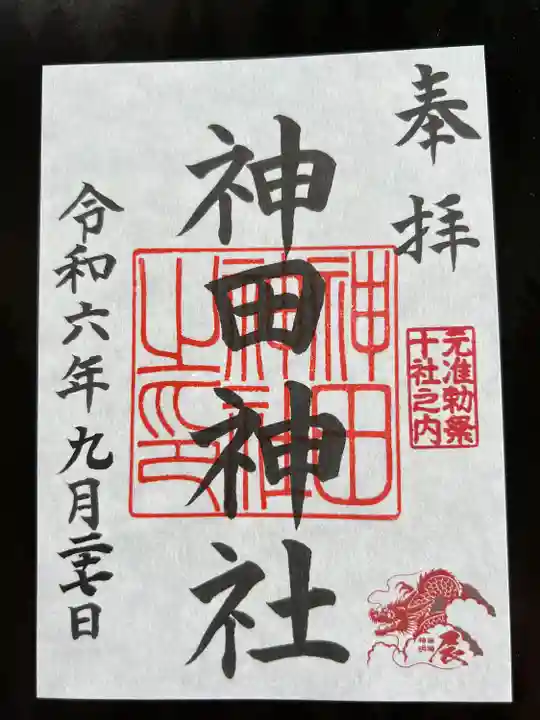 奉拝
元准勅祭
十社之内
神田神社
神田
神社
之印
令和六年九月二十七日
辰